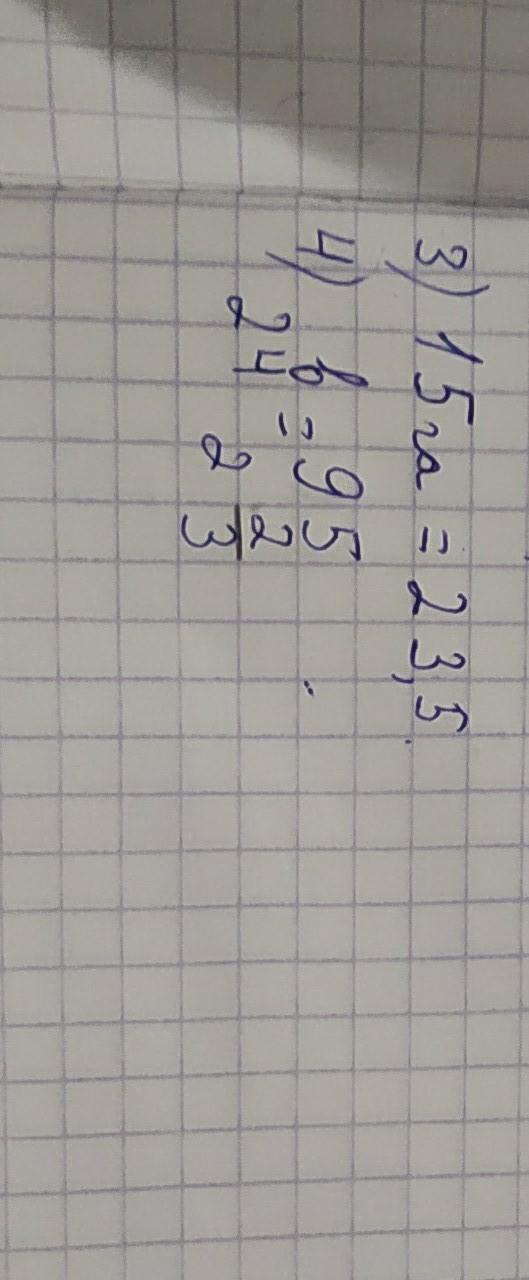 3) 15 a = 23,5
4) b = 95
24 2 2/3